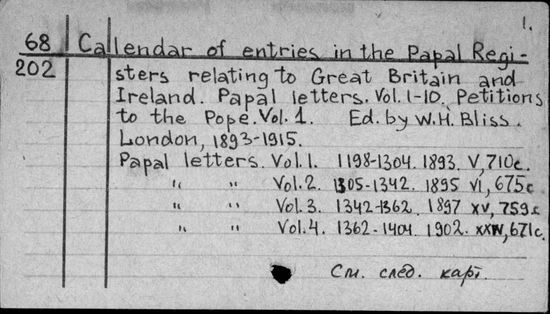 1.
68 Callendar of entries in the Papal Regi-
202 sters relating to Great Britain and
Ireland. Papal letters. Vol. 1-10. Petitions
to the Pope. Vol. 1. Ed. by W.H. Bliss.
London, 1893-1915.
Papal letters. Vol. 1. 1198-1304. 1893. V, 710c.
" " Vol. 2. 1305-1342. 1895 VI, 675c
" " Vol. 3. 1342-1362. 1897 XV, 759c
" " Vol. 4. 1362-1404. 1902. XXIV, 671c.
См. след. карт.